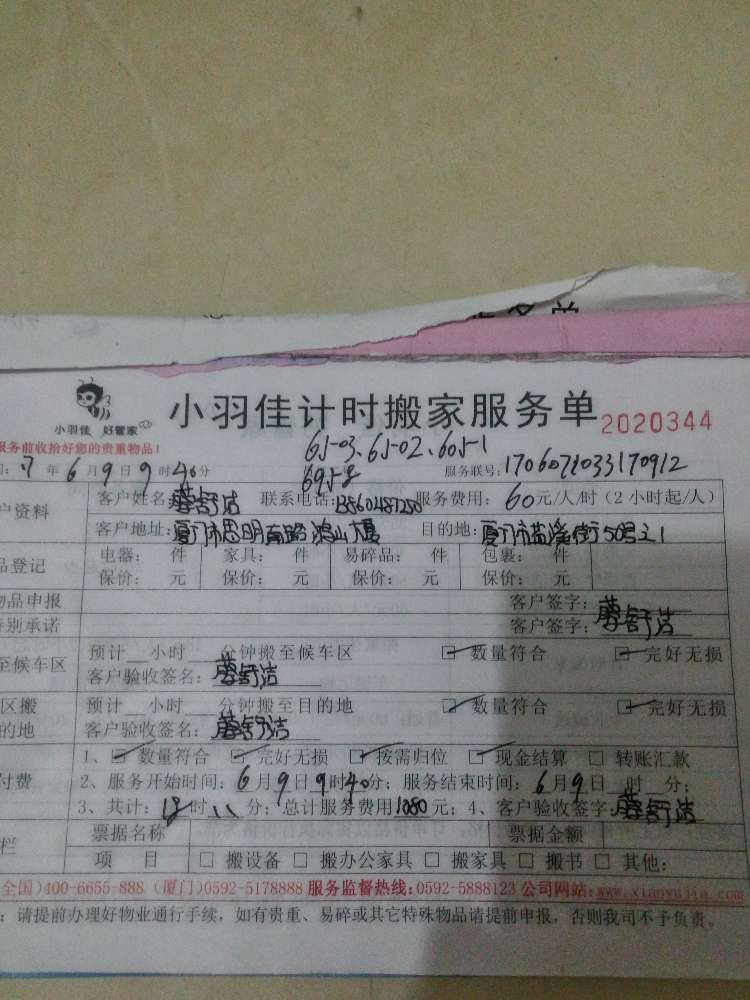 务单
小羽佳 好管家
小羽佳计时搬家服务单 2020344
服务前收拾好您的贵重物品！
6503、6502、6051
6958
年6月9日9时40分 服务联号:1706071033170912
户资料 客户姓名: 舒洁 联系电话: 服务费用: 60元/人/时（2小时起/人）
客户地址:厦门市思明南路鸿山大厦 目的地: 厦门市 街50号之1
品登记 电器: 件 家具: 件 易碎品: 件 包裹: 件
保价: 元 保价: 元 保价: 元 保价: 元
物品申报 客户签字: 舒洁
特别承诺 客户签字:
至候车区 预计__小时__分钟搬至候车区 ☑ 数量符合 ☑ 完好无损
客户验收签名: 舒洁
区搬 预计__小时__分钟搬至目的地 ☑ 数量符合 ☑ 完好无损
的地 客户验收签名: 舒洁
付费 1、☑ 数量符合 ☑ 完好无损 ☑ 按需归位 ☑ 现金结算 □ 转账汇款
2、服务开始时间: 6月9日9时40分; 服务结束时间: 6月9日__时__分;
3、共计: 18时 八 分; 总计服务费用1080元; 4、客户验收签字: 舒洁
栏 票据名称 票据金额
项 目 □ 搬设备 □ 搬办公家具 □ 搬家具 □ 搬书 □ 其他:
全国)400-6655-888 (厦门)0592-5178888 服务监督热线:0592-5888123 公司网站:www.xiaoyujia.com
: 请提前办理好物业通行手续，如有贵重、易碎或其它特殊物品请提前申报，否则我司不予负责。